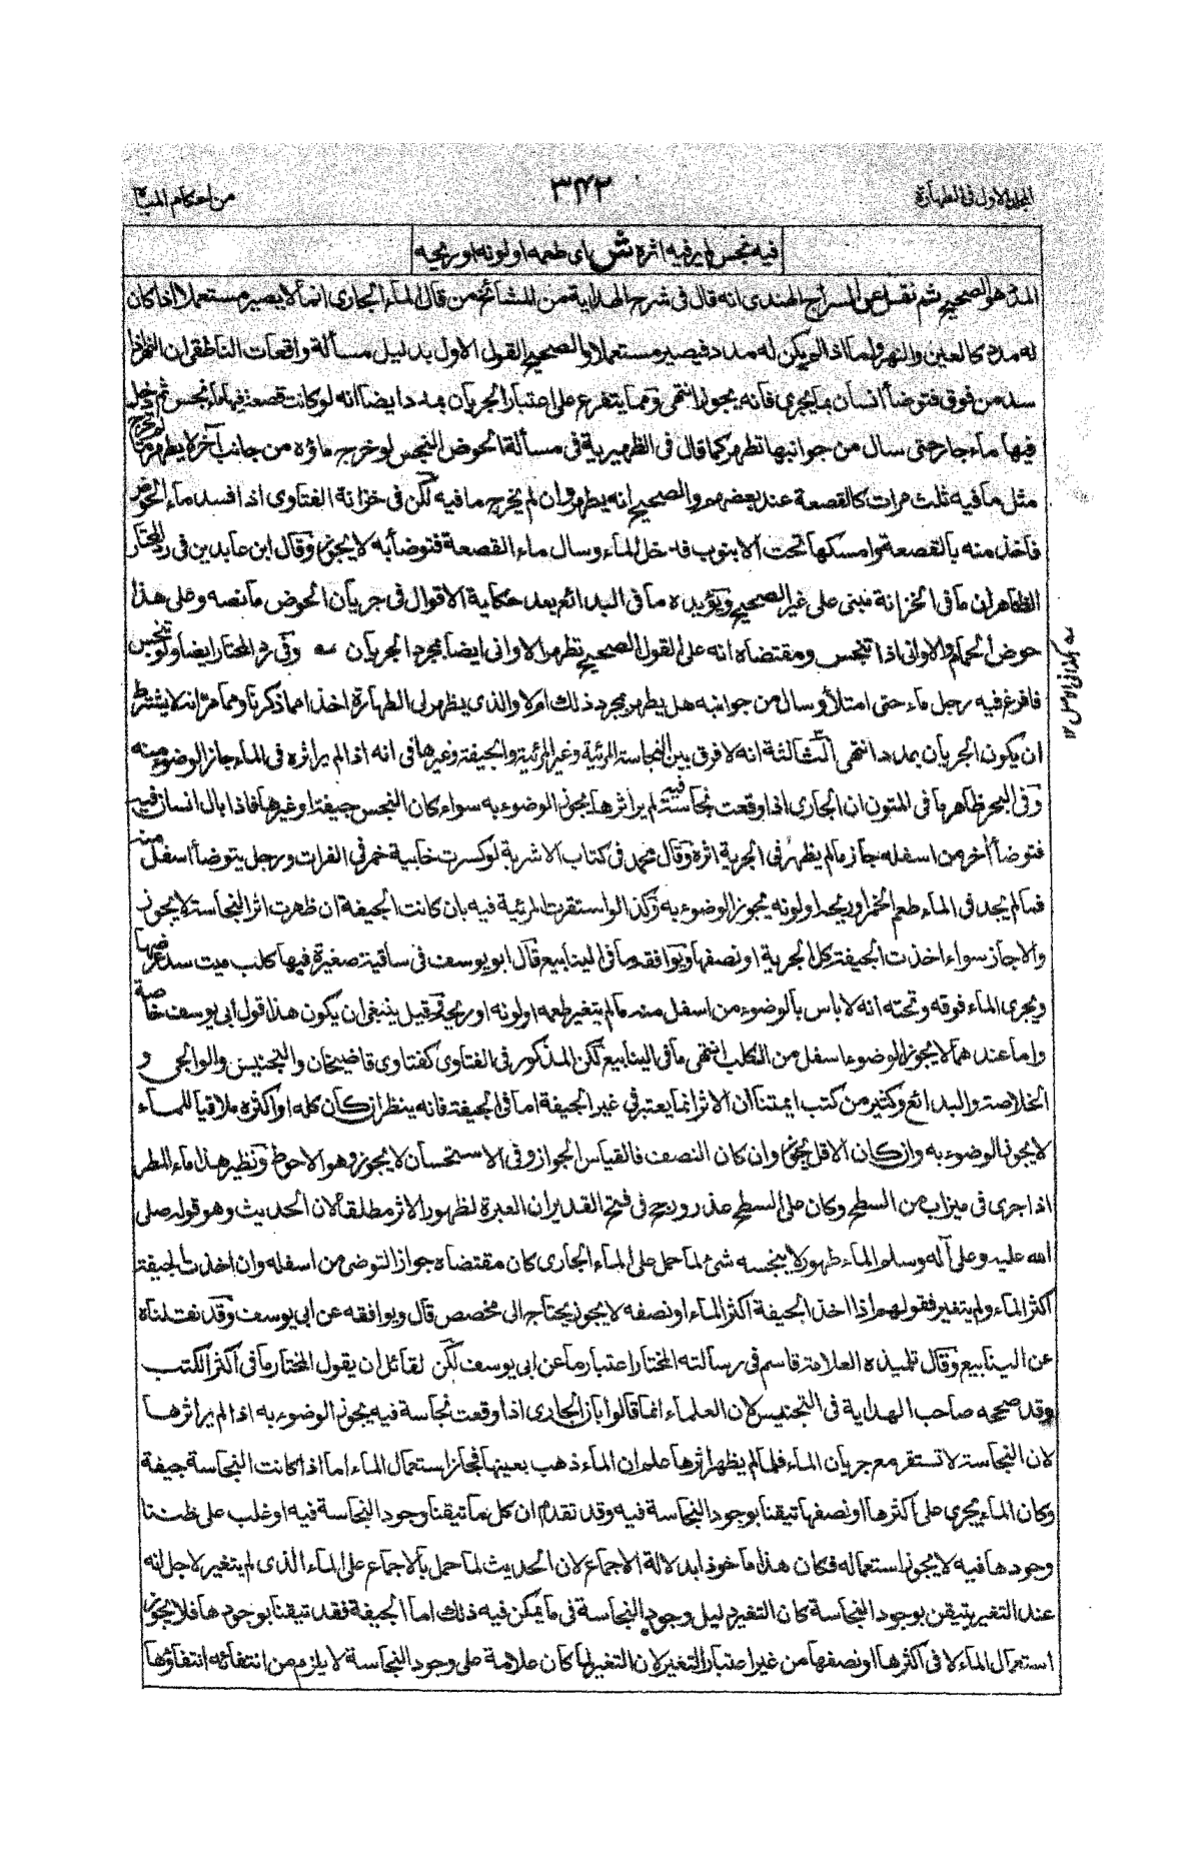 المجلد الاول فی الطهارة
٣٤٢
من احکام المیاه
فیه نجس لم یر فیه اثره ش ای طعمه او لونه او ریحه
المدد هو الصحیح ثم نقل عن السراج الهندی انه قال فی شرح الهدایة من المشائخ من قال الماء الجاری انما لا یصیر مستعملا اذا کان
له مدد کالعین والنهر واما اذا لم یکن له مدد فیصیر مستعملا والصحیح القول الاول بدلیل مسألة واقعات الناطفی ان النهر اذا
سد من فوق فتوضأ انسان بما یجری فانه یجوز انتهی ومما یتفرع علی اعتبار الجریان بمدد ایضا انه لو کانت قصعة فیها ماء نجس ثم دخل
فیها ماء جار حتی سال من جوانبها تطهر کما قال فی الظهیریة فی مسألة الحوض النجس لو خرج ماؤه من جانب آخر لا یطهر ما لم یخرج
مثل ما فیه ثلث مرات کالقصعة عند بعضهم والصحیح انه یطهر وان لم یخرج ما فیه لکن فی خزانة الفتاوی اذا فسد ماء الحوض
فاخذ منه بالقصعة وامسکها تحت الانبوب فدخل الماء وسال ماء القصعة فتوضأ به لا یجوز وقال ابن عابدین فی رد المحتار
الظاهر ان ما فی الخزانة مبنی علی غیر الصحیح ویؤیده ما فی البدائع بعد حکایة الاقوال فی جریان الحوض ما نصه وعلی هذا
حوض الحمام والاوانی اذا تنجس ومقتضاه انه علی القول الصحیح تطهر الاوانی ایضا بمجرد الجریان وفی رد المحتار ایضا ولو تنجس
فافرغ فیه رجل ماء حتی امتلأ وسال من جوانبه هل یطهر بمجرد ذلک ام لا والذی یظهر لی الطهارة اخذا مما ذکرنا ومما مر انه لا یشترط
ان یکون الجریان بمدد انتهی الثالثة انه لا فرق بین النجاسة المرئیة وغیر المرئیة والجیفة وغیرها فی انه اذا لم یر اثره فی الماء جاز الوضوء منه
وفی البحر ظاهر ما فی المتون ان الجاری اذا وقعت فیه نجاسة لم یر اثرها یجوز الوضوء به سواء کان النجس جیفة او غیرها فاذا بال انسان فیه
فتوضأ آخر من اسفله جاز ما لم یظهر فی الجریة اثره وقال محمد فی کتاب الاشربة لو کسرت خابیة خمر فی الفرات ورجل یتوضأ اسفل منه
فما لم یجد فی الماء طعم الخمر او ریحه او لونه یجوز الوضوء به وکذا لو استقرت المرئیة فیه بان کانت الجیفة ان ظهرت اثر النجاسة لا یجوز
والا جاز سواء اخذت الجیفة کل الجریة او نصفها ویوافقه ما فی الینابیع قال ابو یوسف فی ساقیة صغیرة فیها کلب میت سد عرضها
ویجری الماء فوقه وتحته انه لا باس بالوضوء من اسفل منه ما لم یتغیر طعمه او لونه او ریحه وقیل ینبغی ان یکون هذا قول ابی یوسف خاصة
واما عندهما لا یجوز الوضوء اسفل من الکلب انتهی ما فی الینابیع لکن المذکور فی الفتاوی کفتاوی قاضیخان والتجنیس والوالجی و
الخلاصة والبدائع وکثیر من کتب ایمتنا ان الاثر انما یعتبر فی غیر الجیفة اما فی الجیفة فانه ینظر ان کان کله او اکثره ملاقیا للماء
لا یجوز الوضوء به وان کان الاقل یجوز وان کان النصف فالقیاس الجواز وفی الاستحسان لا یجوز وهو الاحوط ونظیر هذا ماء المطر
اذا جری فی میزاب من السطح وکان علی السطح عذرة ورجح فی فتح القدیر ان العبرة لظهور الاثر مطلقا لان الحدیث وهو قوله صلی
الله علیه وعلی آله وسلم الماء طهور لا ینجسه شئ لما حمل علی الماء الجاری کان مقتضاه جواز التوضی من اسفله وان اخذت الجیفة
اکثر الماء ولم یتغیر فقولهم اذا اخذ الجیفة اکثر الماء او نصفه لا یجوز یحتاج الی مخصص قال ویوافقه عن ابی یوسف وقد نقلناه
عن الینابیع وقال تلمیذه العلامة قاسم فی رسالته المختار اعتبار ما عن ابی یوسف لکن لقائل ان یقول المختار ما فی اکثر الکتب
وقد صححه صاحب الهدایة فی التجنیس لان العلماء انما قالوا بان الجاری اذا وقعت نجاسة فیه یجوز الوضوء به اذا لم یر اثرها
لان النجاسة لا تستقر مع جریان الماء فلما لم یظهر اثرها علم ان الماء ذهب بعینها فجاز استعمال الماء اما اذا کانت النجاسة جیفة
وکان الماء یجری علی اکثرها او نصفها تیقنا بوجود النجاسة فیه وقد تقدم ان کل ما تیقنا وجود النجاسة فیه او غلب علی ظننا
وجودها فیه لا یجوز استعماله فکان هذا ماخوذا بدلالة الاجماع لان الحدیث لما حمل بالاجماع علی الماء الذی لم یتغیر لاجل انه
عند التغیر یتیقن بوجود النجاسة کان التغیر دلیل وجود النجاسة فی ما یمکن فیه ذلک اما الجیفة فقد تیقنا بوجودها فلا یجوز
استعمال الماء لا فی اکثرها او نصفها من غیر اعتبار التغیر لان التغیر لما کان علامة علی وجود النجاسة لا یلزم من انتفائه انتفاؤها
کذا فی الاصل ١٢